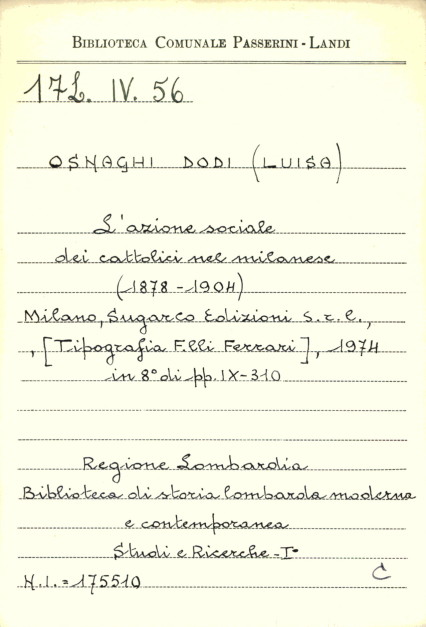 BIBLIOTECA COMUNALE PASSERINI - LANDI
17L. IV. 56
OSNAGHI DODI (LUISA)
L'azione sociale
dei cattolici nel milanese
(1878 - 1904)
Milano, Sugarco Edizioni S.r.l.,
, [Tipografia F.lli Ferrari], 1974
in 8° di pp. IX-310
Regione Lombardia
Biblioteca di storia lombarda moderna
e contemporanea
Studi e Ricerche - I°
N.I. = 175510
C